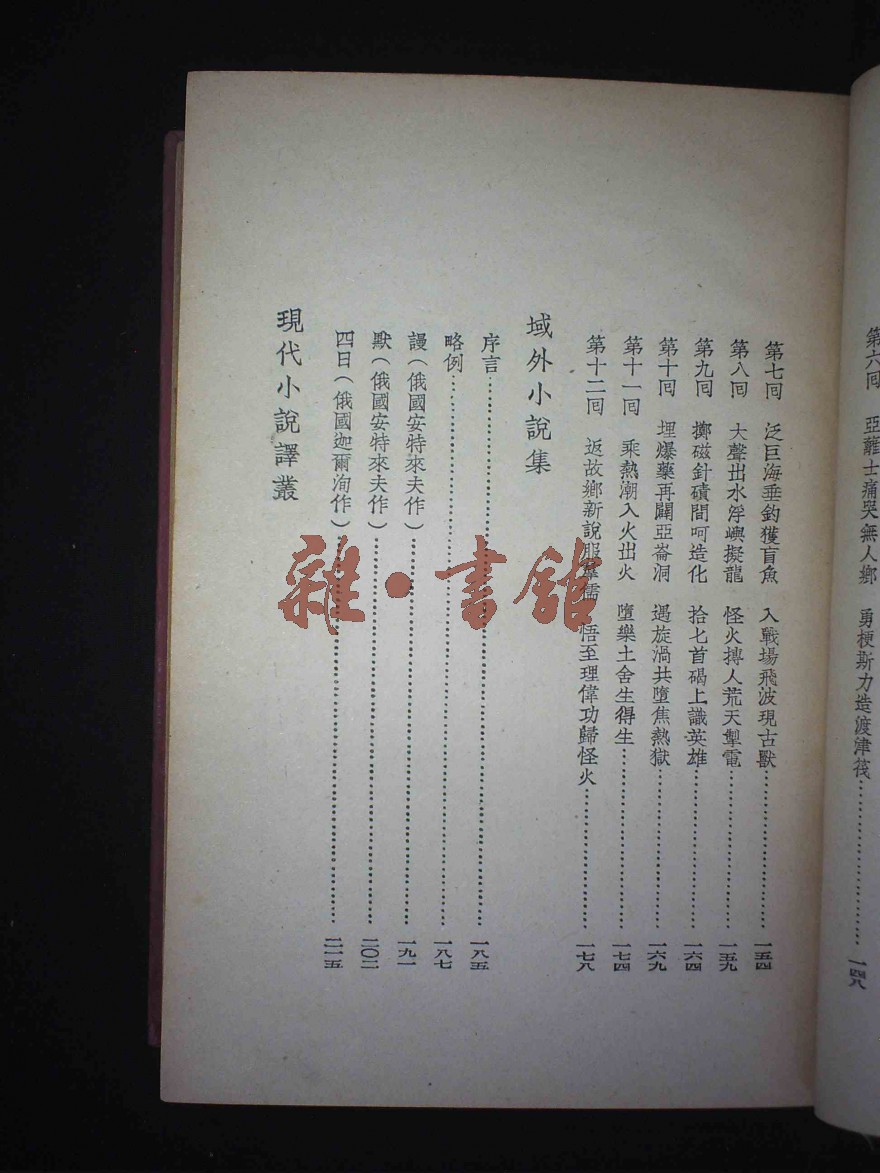 第六回　亞蘺士痛哭無人鄉　勇梗斯力造渡津筏…………一四八
第七回　泛巨海垂釣獲盲魚　入戰場飛波現古獸…………一五四
第八回　大聲出水浮嶼擬龍　怪火搏人荒天掣電…………一五九
第九回　擲磁針磧間呵造化　拾匕首碣上識英雄…………一六四
第十回　埋爆藥再闢亞崙洞　遇旋渦共墮焦熱獄…………一六九
第十一回　乘熱潮入火出火　墮樂土舍生得生…………一七四
第十二回　返故鄉新說服羣儒　悟至理偉功歸怪火…………一七八
域外小說集
序言…………一八五
略例…………一八七
謾（俄國安特來夫作）…………一九一
默（俄國安特來夫作）…………二〇二
四日（俄國迦爾洵作）…………二一五
現代小說譯叢
雜·書館